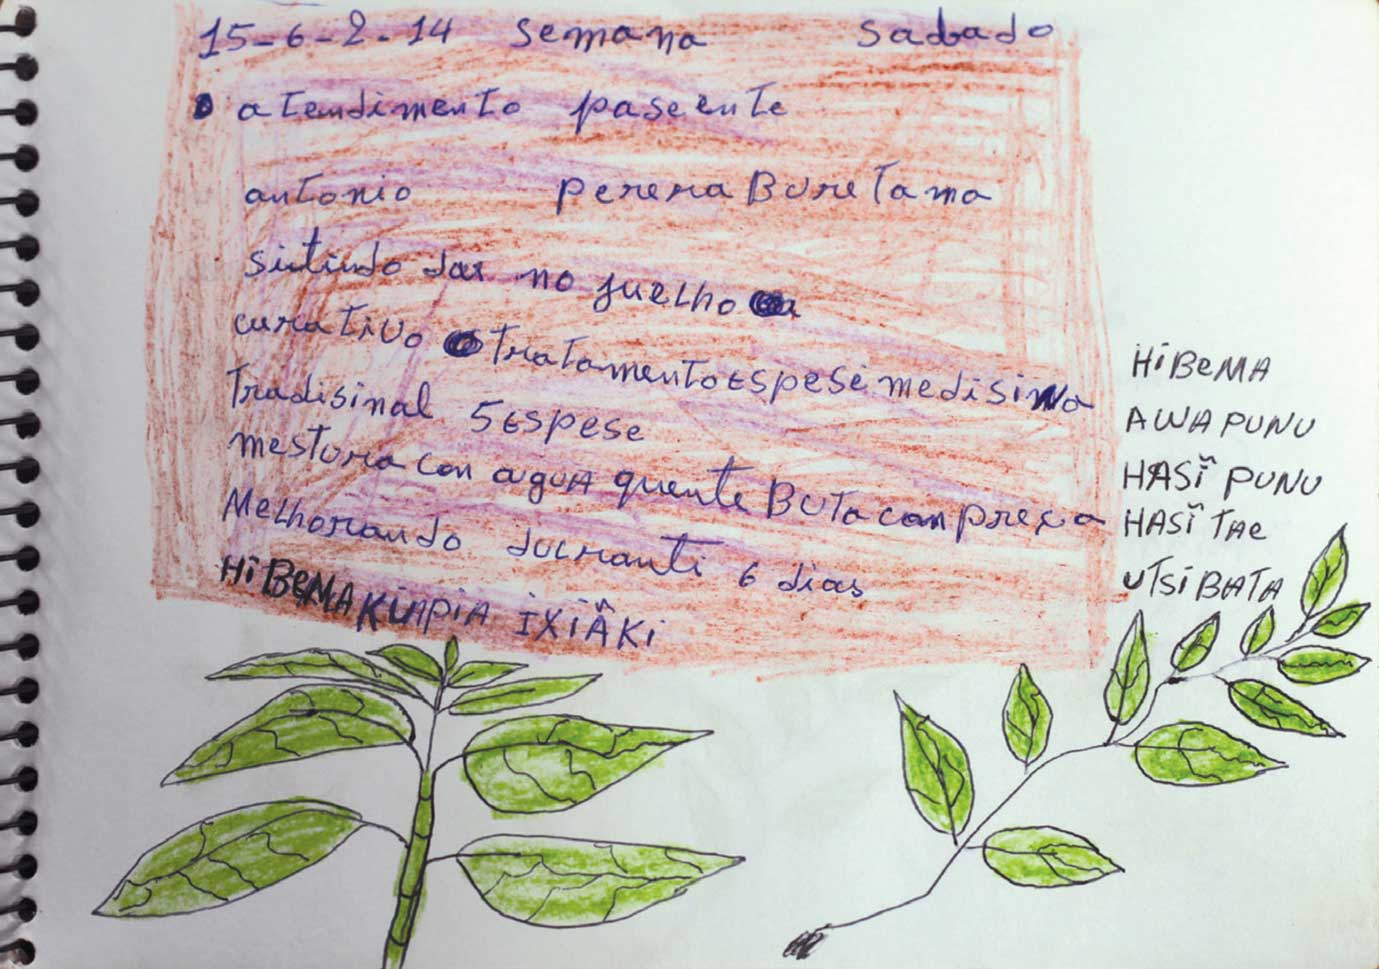 15-6-2-14 semana sabado
atendimento paseente
antonio perera Buretama
sintindo dor no juelho
curativo tratamento espesi medisina
Tradisinal 5 espese
mestura con agua quente Buta conpreça
Melhorando duranti 6 dias
HiBEMA KUAPIA iXiÂKi
HiBEMA
AWA PUNU
HASĨ PUNU
HASĨ TAE
UTSi BATA